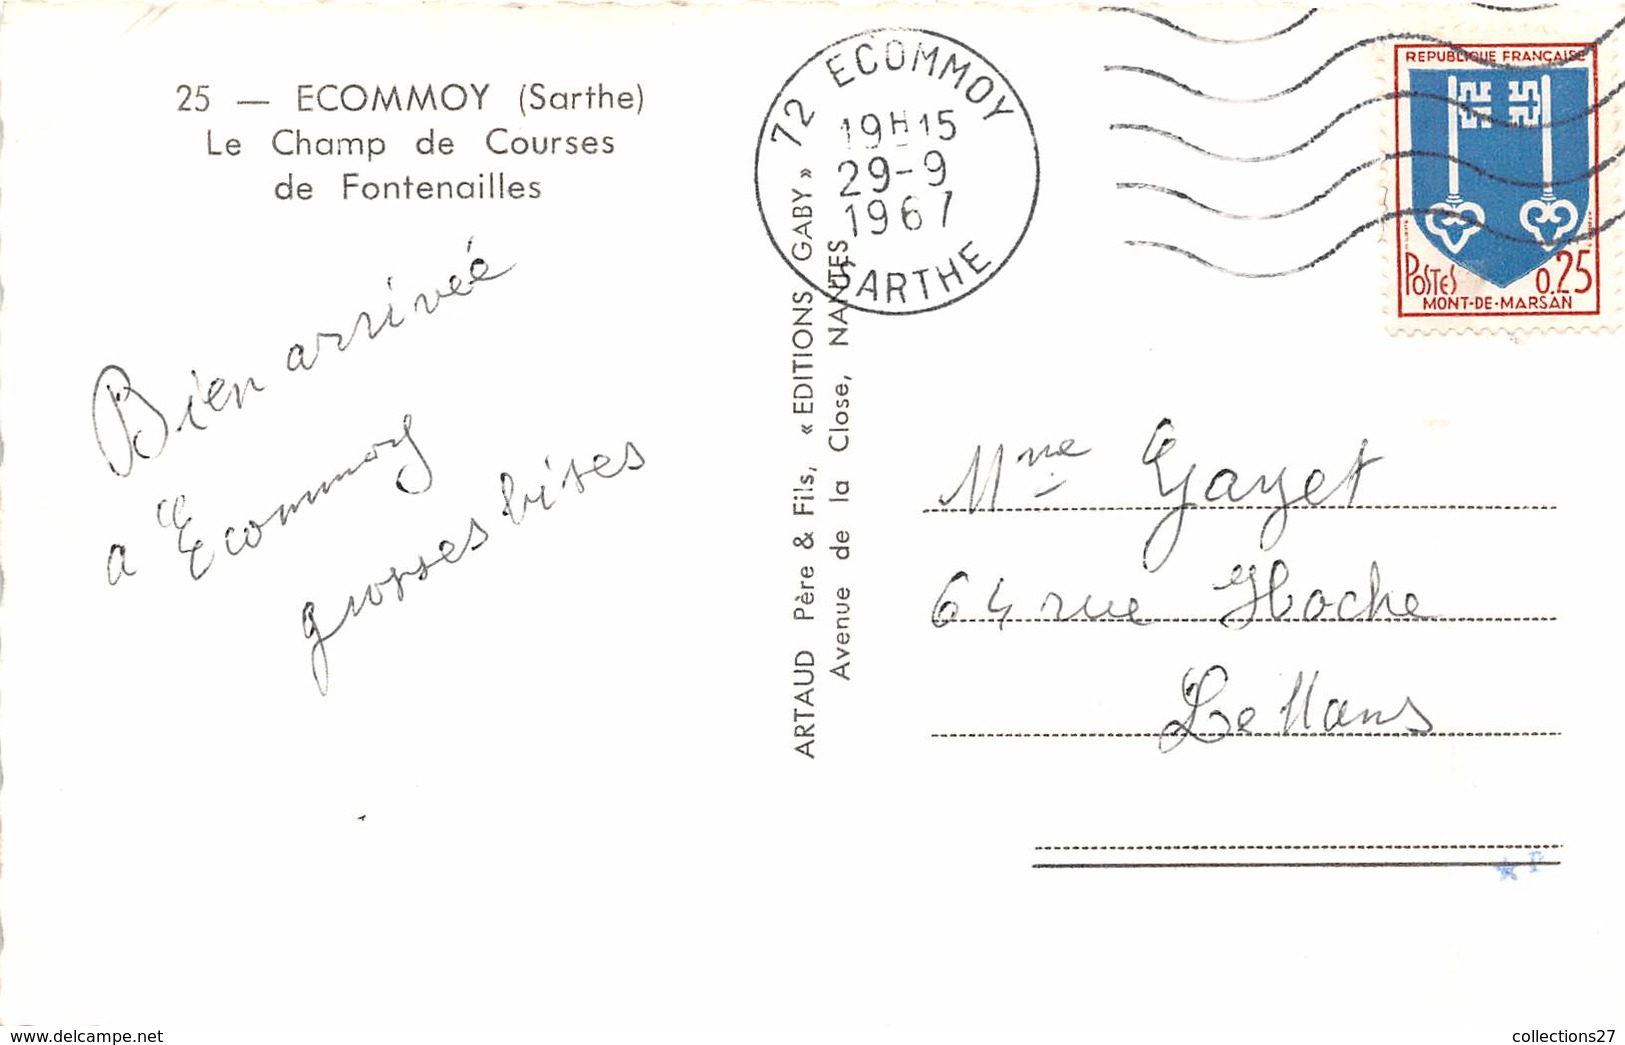 25 — ECOMMOY (Sarthe)
Le Champ de Courses
de Fontenailles
Bien arrivée
a Ecommoy
grosses bises
ARTAUD Père & Fils, « EDITIONS GABY »
Avenue de la Close, NANTES
72 ECOMMOY
19H15
29-9
1967
SARTHE
REPUBLIQUE FRANÇAISE
POSTES 0.25
MONT-DE-MARSAN
Mme Gayet
64 rue Hoche
Le Mans
P
www.delcampe.net
collections27